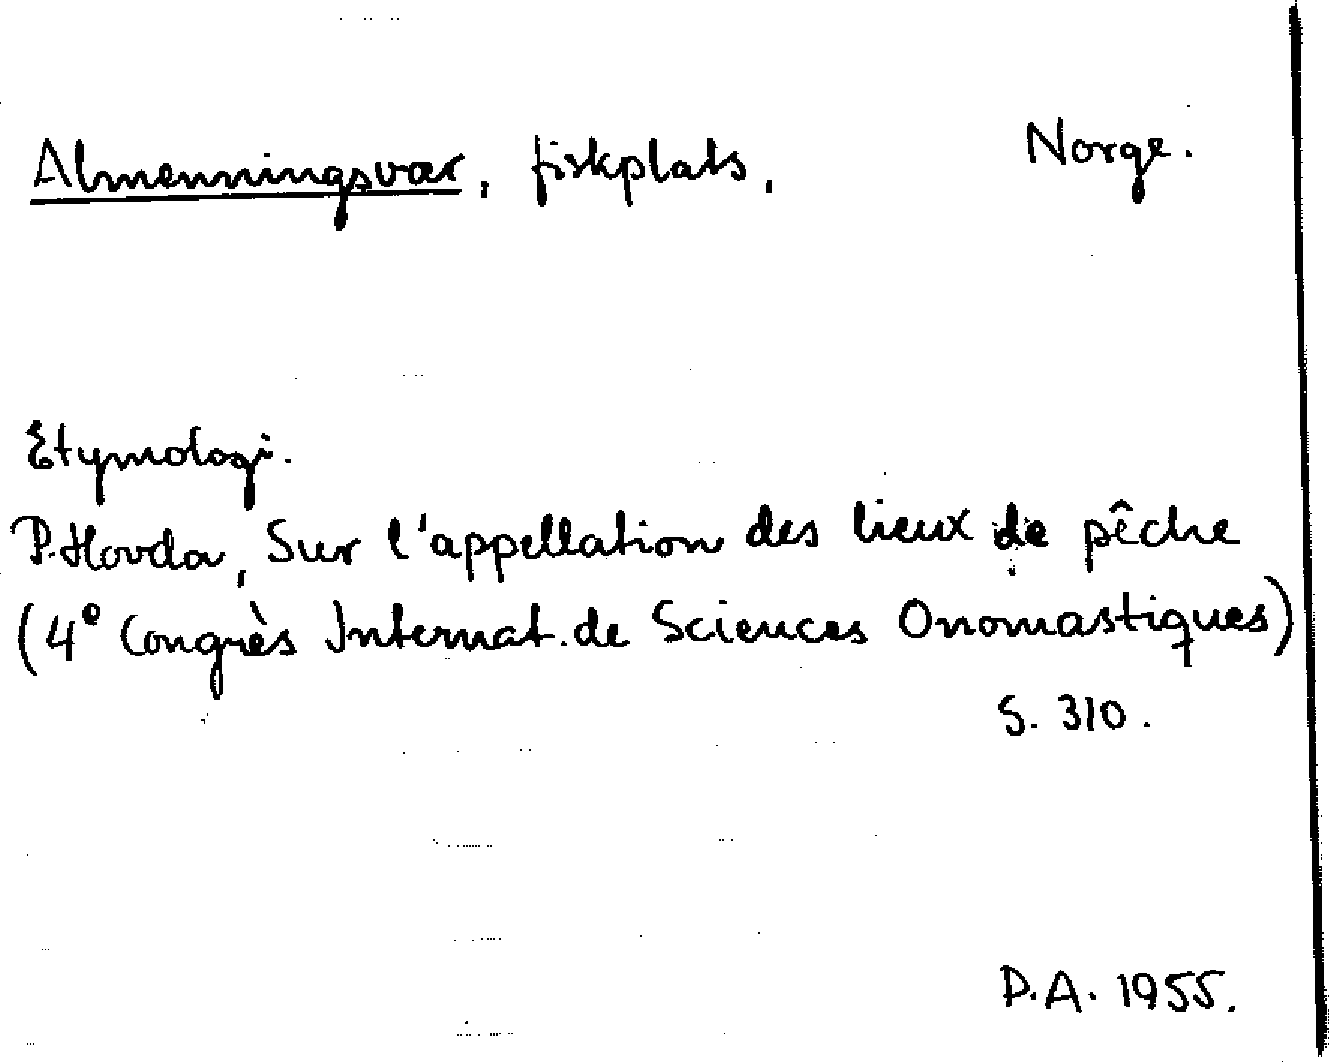 Almenningsvær, fiskplats, Norge.
Etymologi.
P. Hovda, Sur l'appellation des lieux de pêche
(4e Congrès Internat. de Sciences Onomastiques)
S. 310.
D.A. 1955.